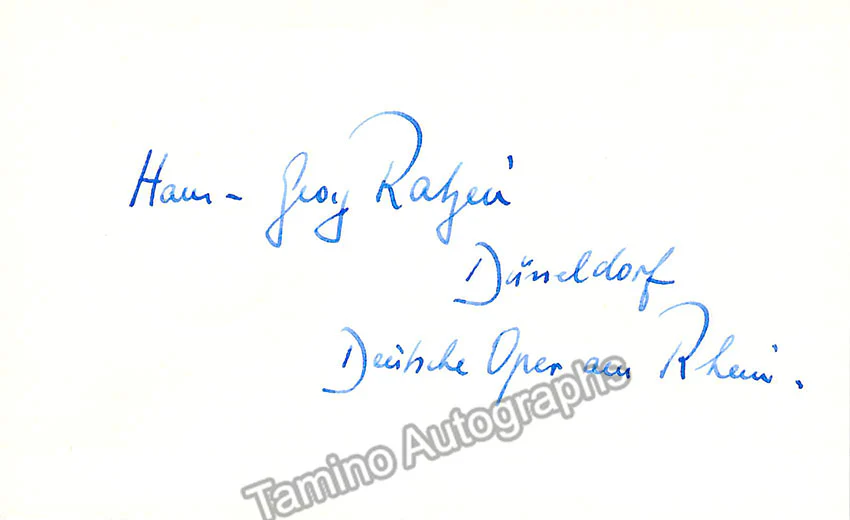 Hans-Georg Ratjen
Düsseldorf
Deutsche Oper am Rhein.
Tamino Autographs